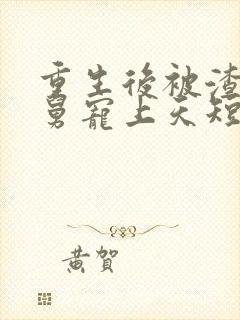 重生後被渣
舅寵上天短
黃賀